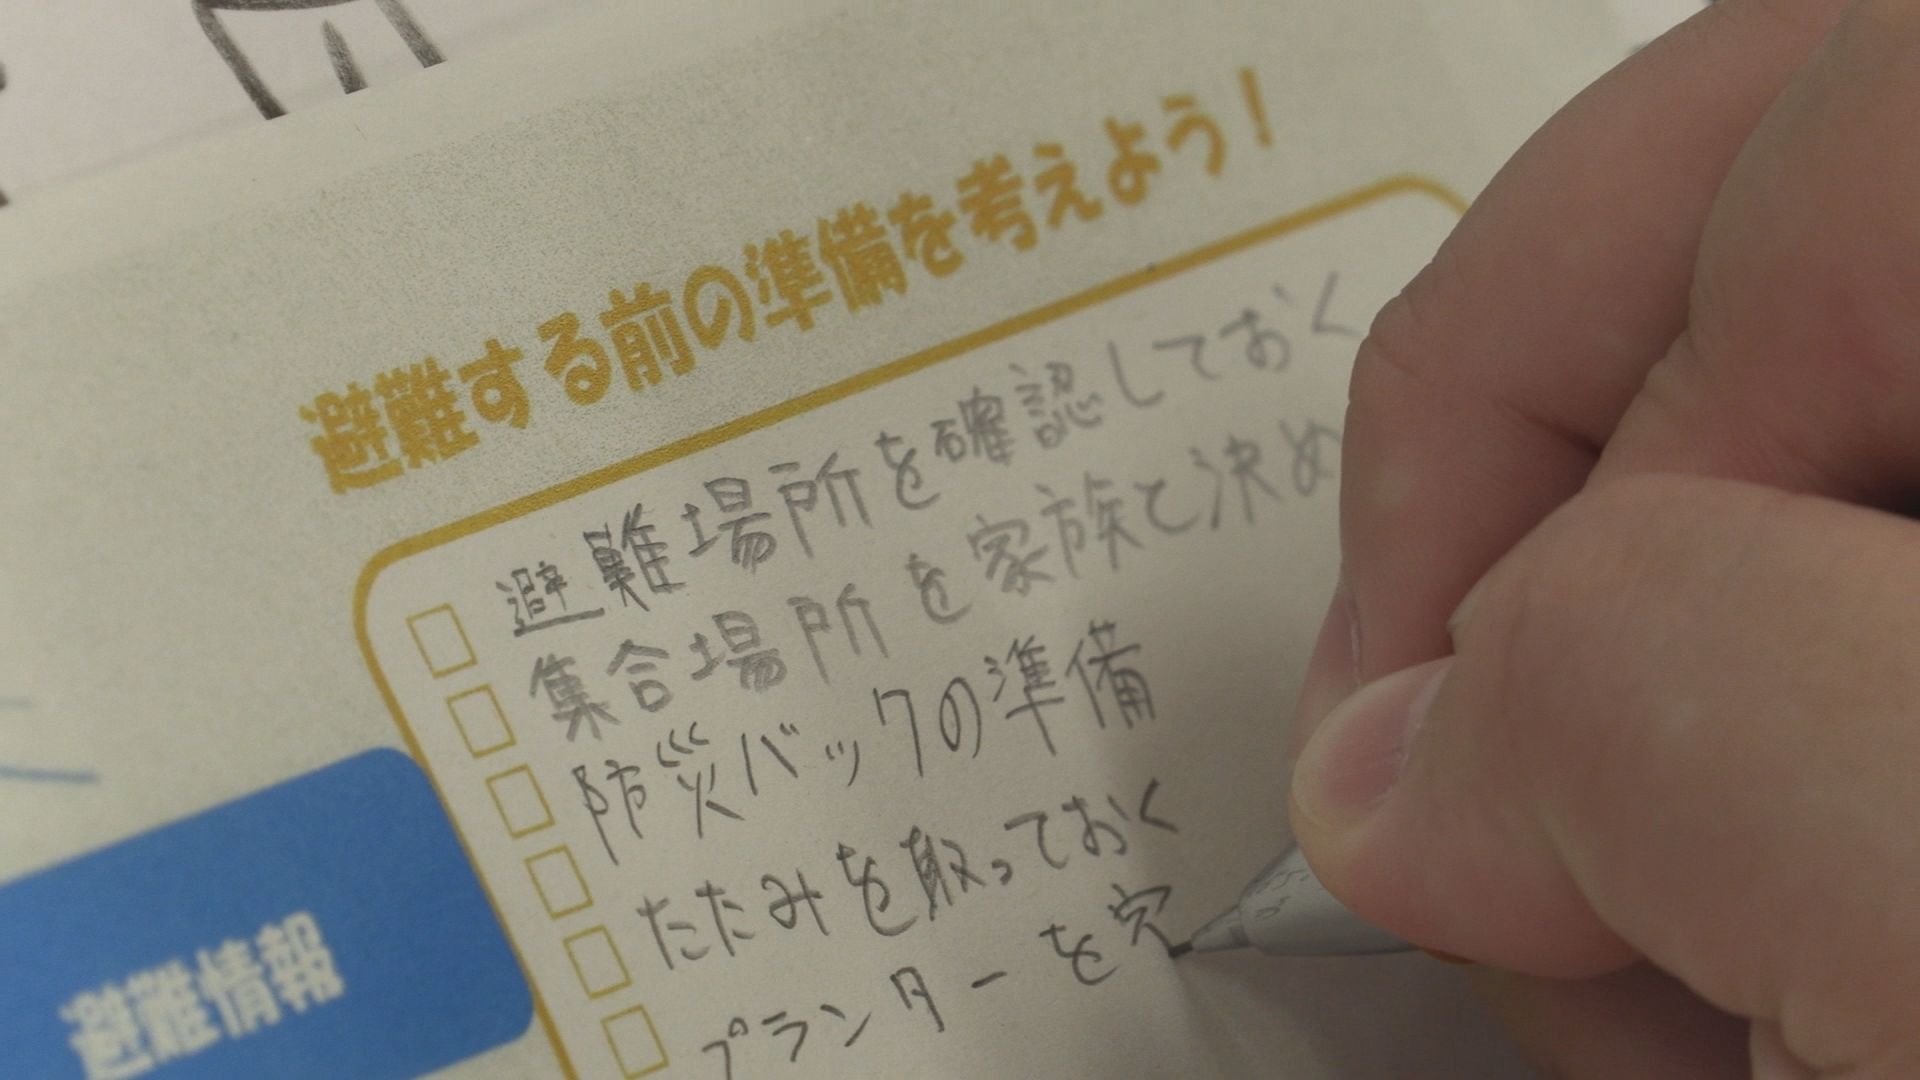 避難する前の準備を考えよう!
避難場所を確認しておく
集合場所を家族と決め
防災バックの準備
たたみを取っておく
プランターを
避難情報